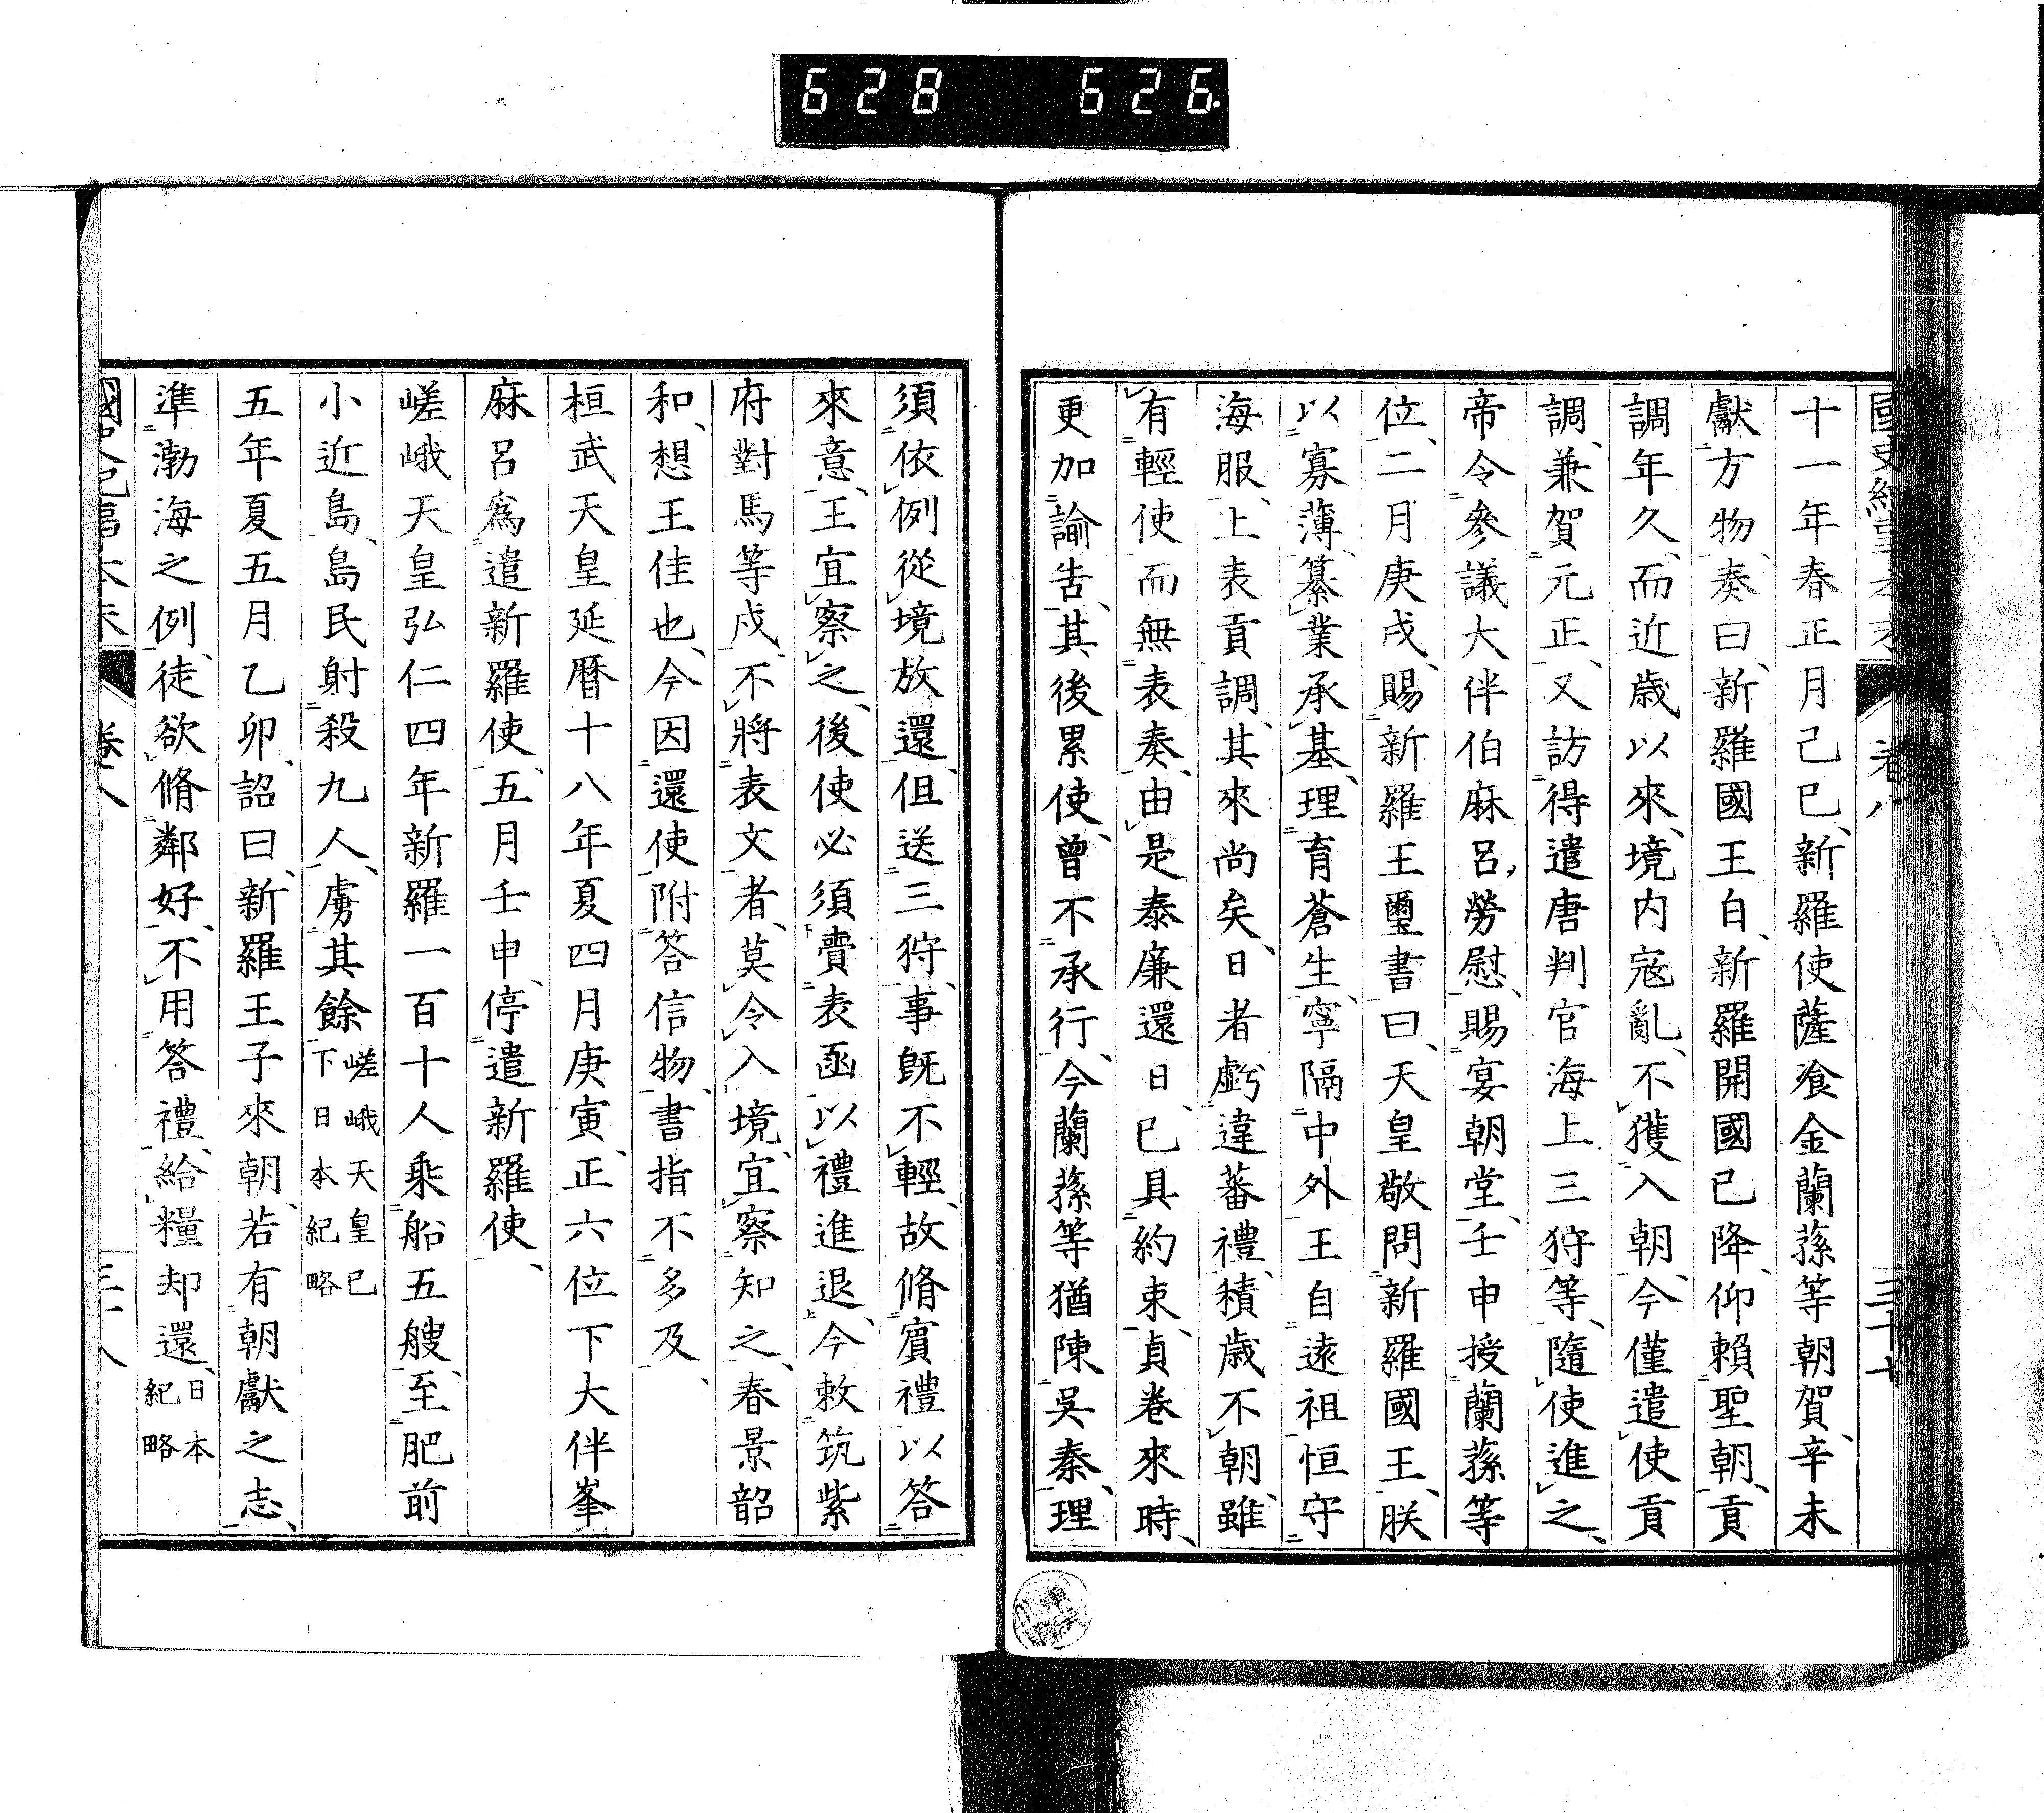 628 626.
國史紀事本末 卷八 三十七
十一年春正月己巳、新羅使薩飡金蘭蓀等朝賀、辛未
獻方物、奏曰、新羅國王白、新羅開國已降、仰賴聖朝、貢
調年久、而近歲以來、境内寇亂、不獲入朝、今僅遣使貢
調、兼賀元正、又訪得遣唐判官海上三狩等、隨使進之、
帝令參議大伴伯麻呂、勞慰、賜宴朝堂、壬申授蘭蓀等
位、二月庚戌、賜新羅王璽書曰、天皇敬問新羅國王、朕
以寡薄、纂業承基、理育蒼生、寧隔中外、王自遠祖恒守
海服、上表貢調、其來尚矣、日者虧違蕃禮、積歲不朝、雖
有輕使而無表奏、由是泰廉還日、已具約束、貞卷來時、
更加諭告、其後累使、曾不承行、今蘭蓀等猶陳吳奏、理
須依例從境放還、但送三狩、事旣不輕、故脩賓禮以答
來意、王宜察之、後使必須賷表函以禮進退、今敕筑紫
府對馬等戍、不將表文者、莫令入境、宜察知之、春景韶
和、想王佳也、今因還使附答信物、書指不多及、
桓武天皇延曆十八年夏四月庚寅、正六位下大伴峯
麻呂爲遣新羅使、五月壬申、停遣新羅使、
嵯峨天皇弘仁四年新羅一百十人乘船五艘、至肥前
小近島、島民射殺九人、虜其餘 嵯峨天皇已下日本紀略
五年夏五月乙卯、詔曰、新羅王子來朝、若有朝獻之志、
準渤海之例、徒欲脩鄰好、不用答禮、給糧却還、日本紀略
國史紀事本末 卷八 三十八